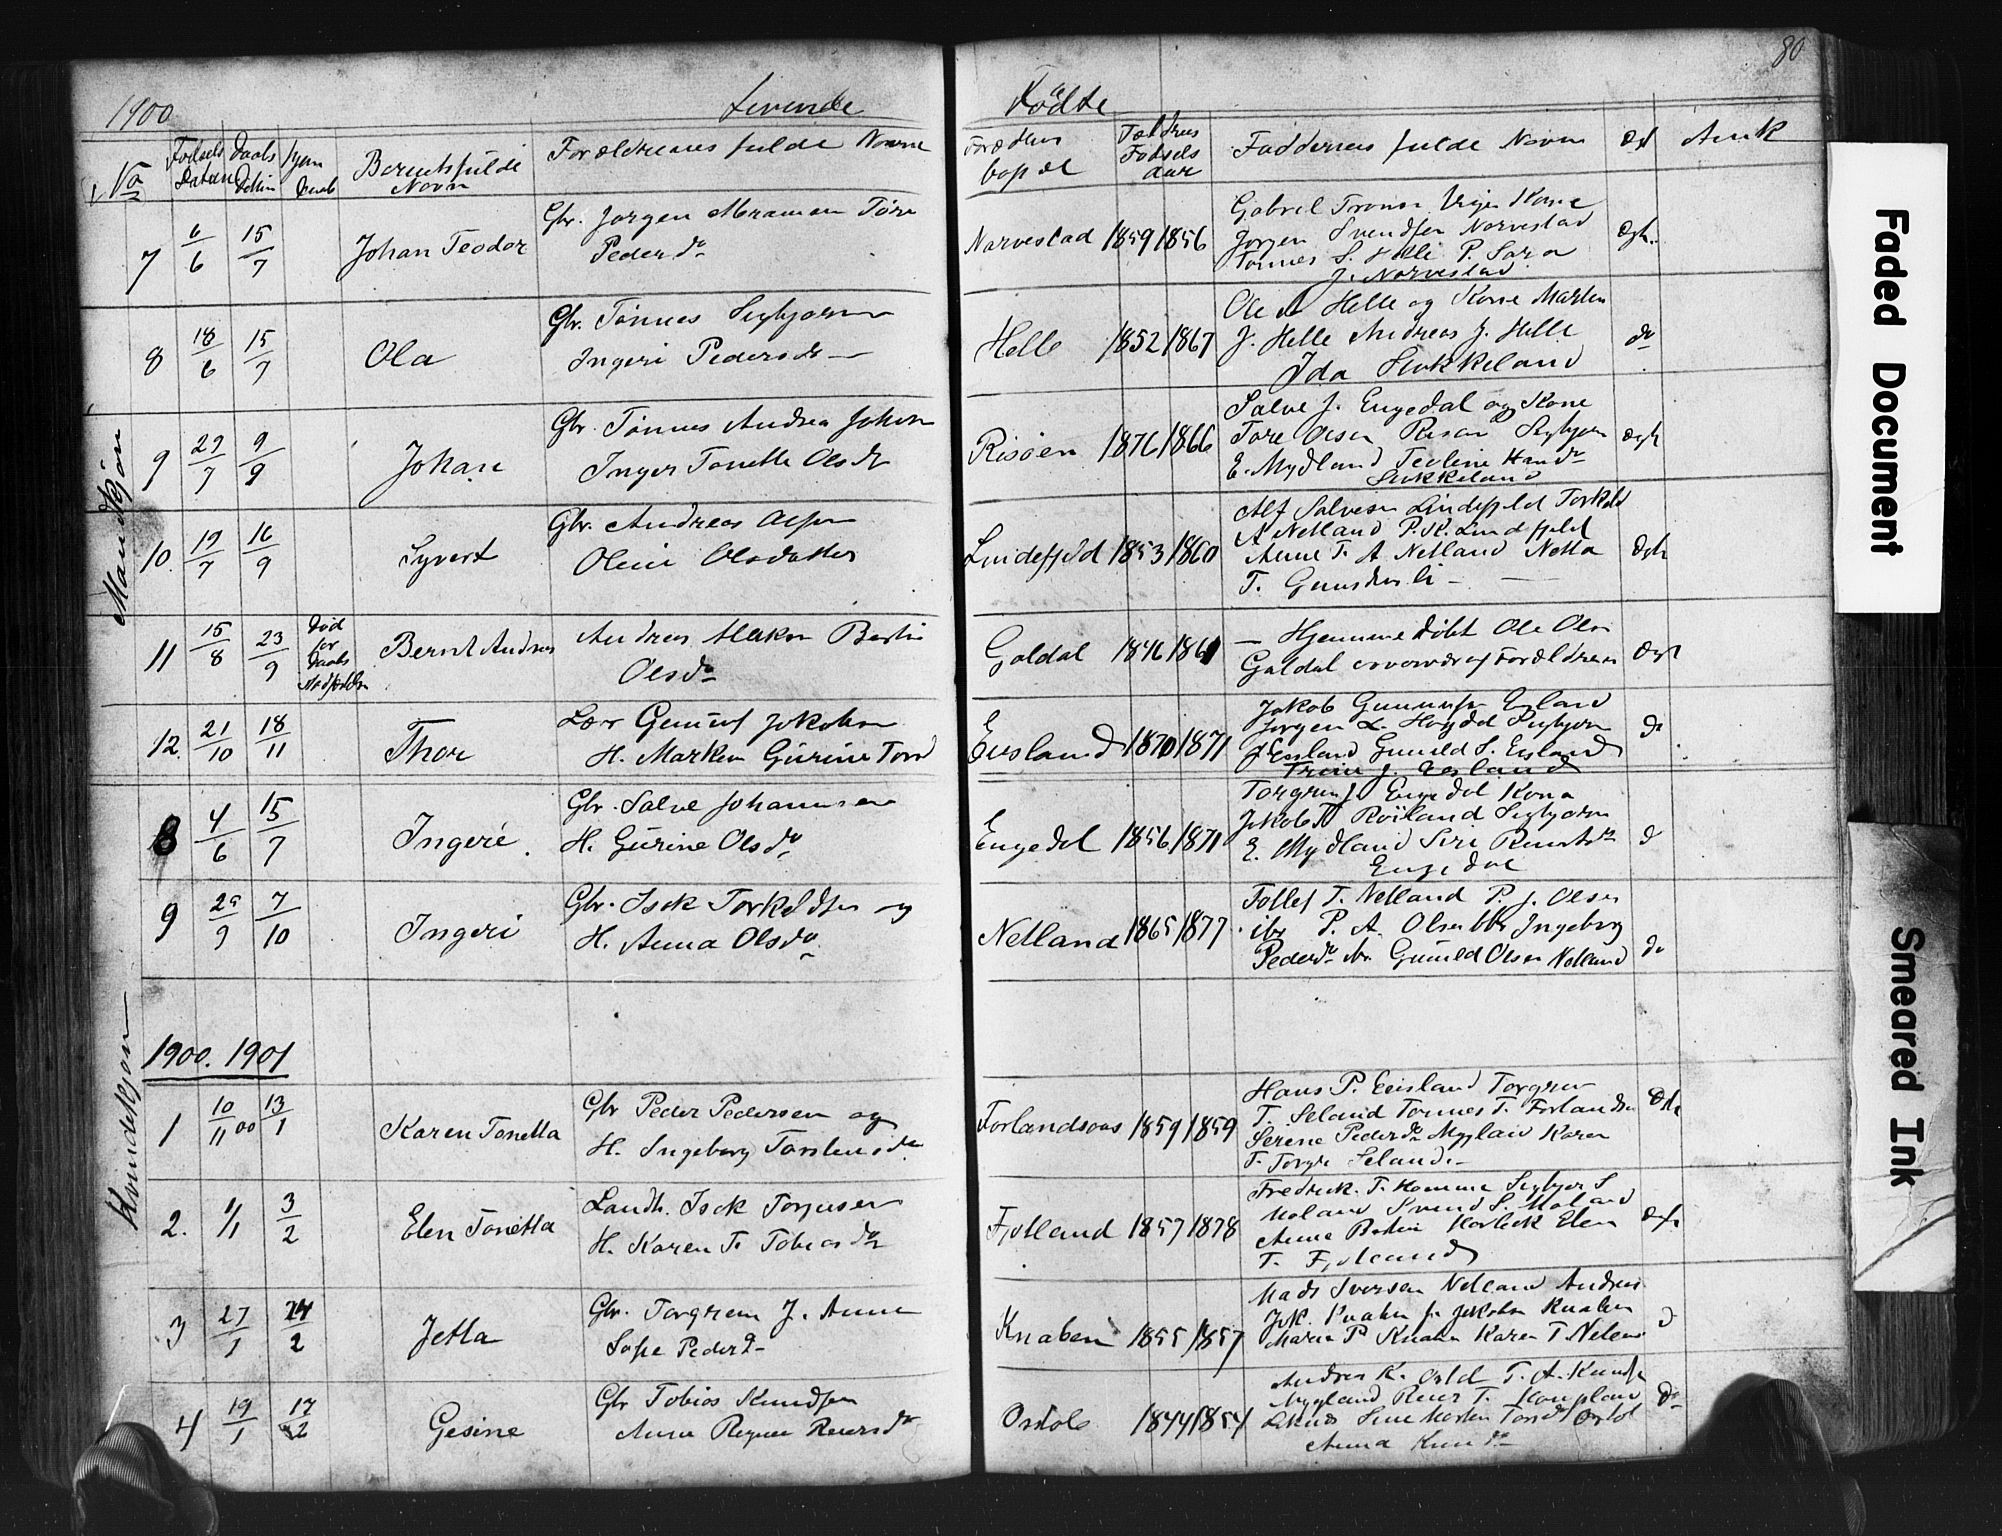 80
1900 Levende Födte
No Fodsels Datum Daabs Datum Hjem Daab Barnets fulde Navn Forældrenes fulde Navne Forældres bopæl Fældres Fødsels aar Faddernes fulde Navn Æf Ank
Mandkjøn
7 6/6 15/7 Johan Teodor
Gbr. Jorgen Abraman Tore
Peder do
Narvestad 1859 1856
Gabrel Tronsn Kone
Jorgen Svendsen Narvestad
Tonnes S. Helle P. Sara
J. Narvestad
Ægt.
8 18/6 15/7 Ola
Gbr. Tönnes Sigbjørnsn
Ingeri Pedersdr
Helle 1852 1867
Ole A Helle og Kone Marten
J. Helle Andreas J. Helle
Ida Stokkeland
do
9 27/7 9/9 Johan
Gbr. Tönnes Andrea Johan
Inger Tonette Olsdr
Risöen 1876 1866
Salve J. Engedal og Kone
Tore Olsen Risøn Sigbjørn
E. Mydland Teoline Hans do
Stokkeland
Ægt
10. 19/7 16/9 Syvert
Gbr. Andreas
Oline Olsdatter
Lindefjeld 1853 1860
Alf Salvesen Lindefjeld Torkeld
A Netland P. K. Lindefjeld
Anne T. A Netland Netta
T. Gunsdersli
Ægt
11 15/8 23/9 Død for Daabs Bernt Andres
Andreas Hakon Bertine
Olsdr
Galdal 1846 1861
— Hjemmedöbt Ole Olsn
Galdal Forældrene
Ægt
12. 21/10 18/11 Thor
Lær Gunuf Jokobsn
H. Marken Gurine Tord
Eiesland 1870 1871
Jakob Gunnufsn Eesland
Jorgen L. Hogdal Sigbjorn
J Eesland Gunild S. Eesland
Trine J. Eesland
do
8 4/6 15/7 Ingeri
Gbr. Salve Johannesen
H. Gurine Olsdr
Engedal 1856 1871
Torgrim J Engedal Kona
Jakob T Röiland Sigbjorn
E. Mydland Siri
Engedal
d
9 29/9 7/10 Ingeri
Gbr. Isak Torkeldsen og
H. Anna Olsdr
Netland 1865 1877
Tollef T. Netland P. J. Olsen
ibr P. A. Olsen Ingeborg
Pedersdr Gunild Olsen Netland
do
Kvindekjøn
1900. 1901
1 10/11 00 13/1 Karen Tonetta
Gbr Peder Pedersen og
H. Ingeborg Torstensdr
Forlandsaas 1859 1859
Hans P. Eeisland Torgrim
T. Seland Tonnes T. Forlandsn
Serine Pedersdr Myglan Karen
T. Seland
Ægt
2. 1/1 3/2 Elen Tonetta
Landh. Isak Torjusen
H. Karen T. Tobiasdr
Fjotland 1857 1878
Fredrik T. Homme Sigbjor S
Moland Svend S. Moland
Anne Elen
T. Fjotland
Ægt
3 27/1 24/2 Jetta
Gbr. Torgrim J. Anne
Sofie Pedersdr
Knaben 1855 1857
Mads Iversen Netland Andreas
Jak. Knaben J. Jakobsn Knaben
Maria P. Knaben Karen T. Netland
d
4 19/1 17/2 Gesine
Gbr Tobias Knudsen
Anne Regine Reiersdr
Osdole 1844 1854
Andreas K. Osdal T. A. Knudsn
Mygland Reier T.
Sine Marken Osdal
Anna Knudsdr
do
Faded Document
Smeared Ink